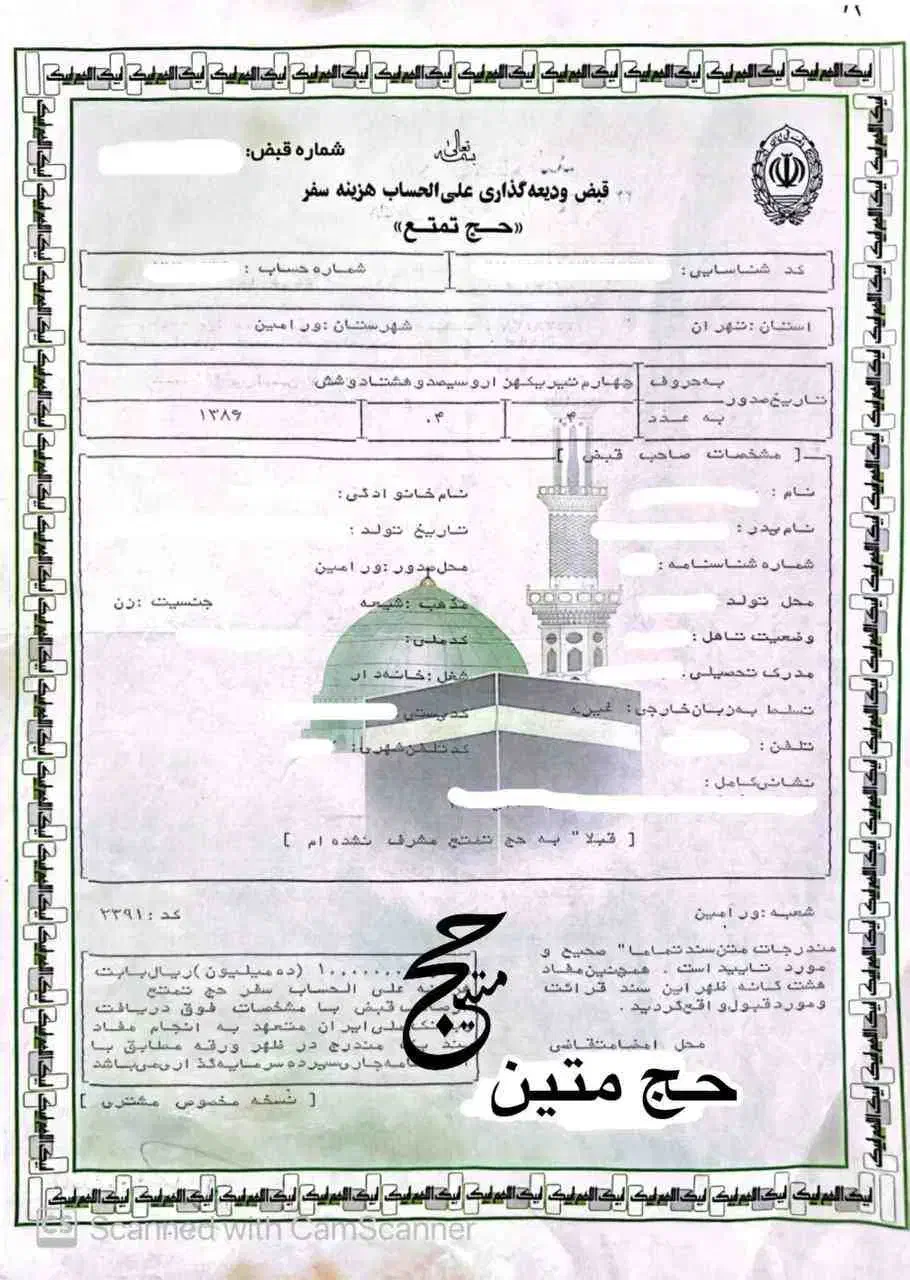 بسمه تعالی
شماره قبض:
قبض ودیعه گذاری علی الحساب هزینه سفر
«حج تمتع»
کد شناسایی:
شماره حساب :
استان :تهران
شهرستان :ورامین
تاریخ صدور
به حروف
چهارم تیر یکهزاروسیصدو هشتادوشش
به عدد
۰۴
۰۴
۱۳۸۶
[ مشخصات صاحب قبض ]
نام :
نام خانوادگی :
نام پدر :
تاریخ تولد :
شماره شناسنامه :
محل صدور :ورامین
محل تولد
مذهب :شیعه
جنسیت :زن
وضعیت تاهل :
کدملی :
مدرک تحصیلی.
شغل :خانه دار
تسلط به زبان خارجی: غیره
کدپستی
تلفن :
کدتلفن شهری:
نشانی کامل :
[ قبلا" به حج تمتع مشرف نشده ام ]
شعبه :ورامین
کد :۲۳۹۱
مندرجات متن سند تماما" صحیح و
مورد تایید است . همچنین مفاد
هشت گانه ظهر این سند قرائت
و مورد قبول واقع گردید .
محل امضا متقاضی
(ده میلیون) ریال بابت
علی الحساب سفر حج تمتع
قبض با مشخصات فوق دریافت
ملی ایران متعهد به انجام مفاد
مندرج در ظهر ورقه مطابق با
جاری سپرده سرمایه گذاری می باشد
[ نسخه مخصوص مشتری ]
حج
متین
حج متین
لبیک اللهم لبیک
CS Scanned with CamScanner